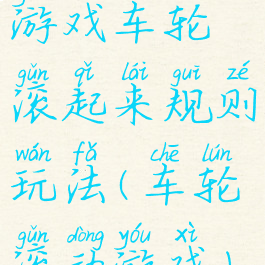 游戏车轮
gǔn qǐ lái guī zé
滚起来规则
wán fǎ chē lún
玩法(车轮
gǔn dòng yóu xì
滚动游戏)